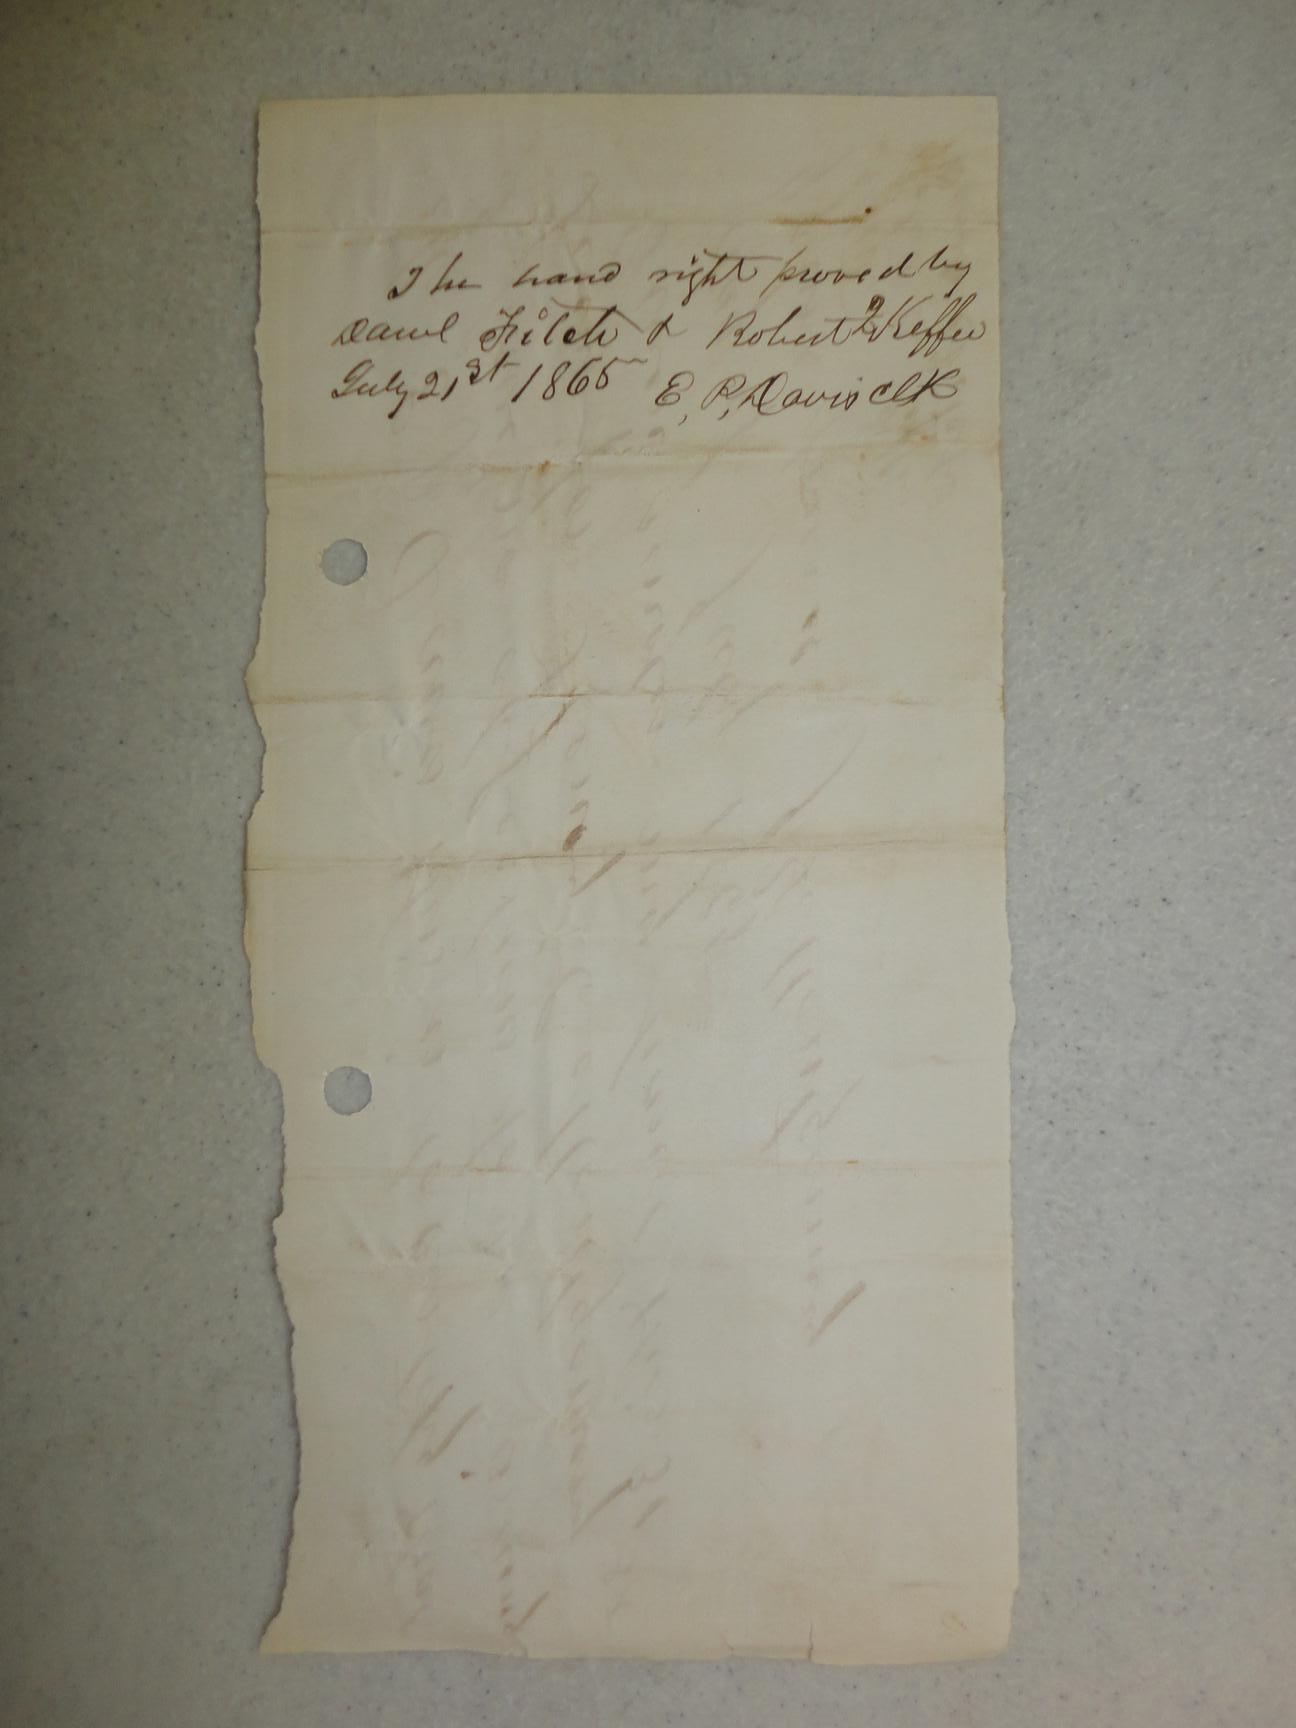 The hand right proved by
Danl Fitch & Robert Keffer
July 21st 1865 E, P, Davis clk